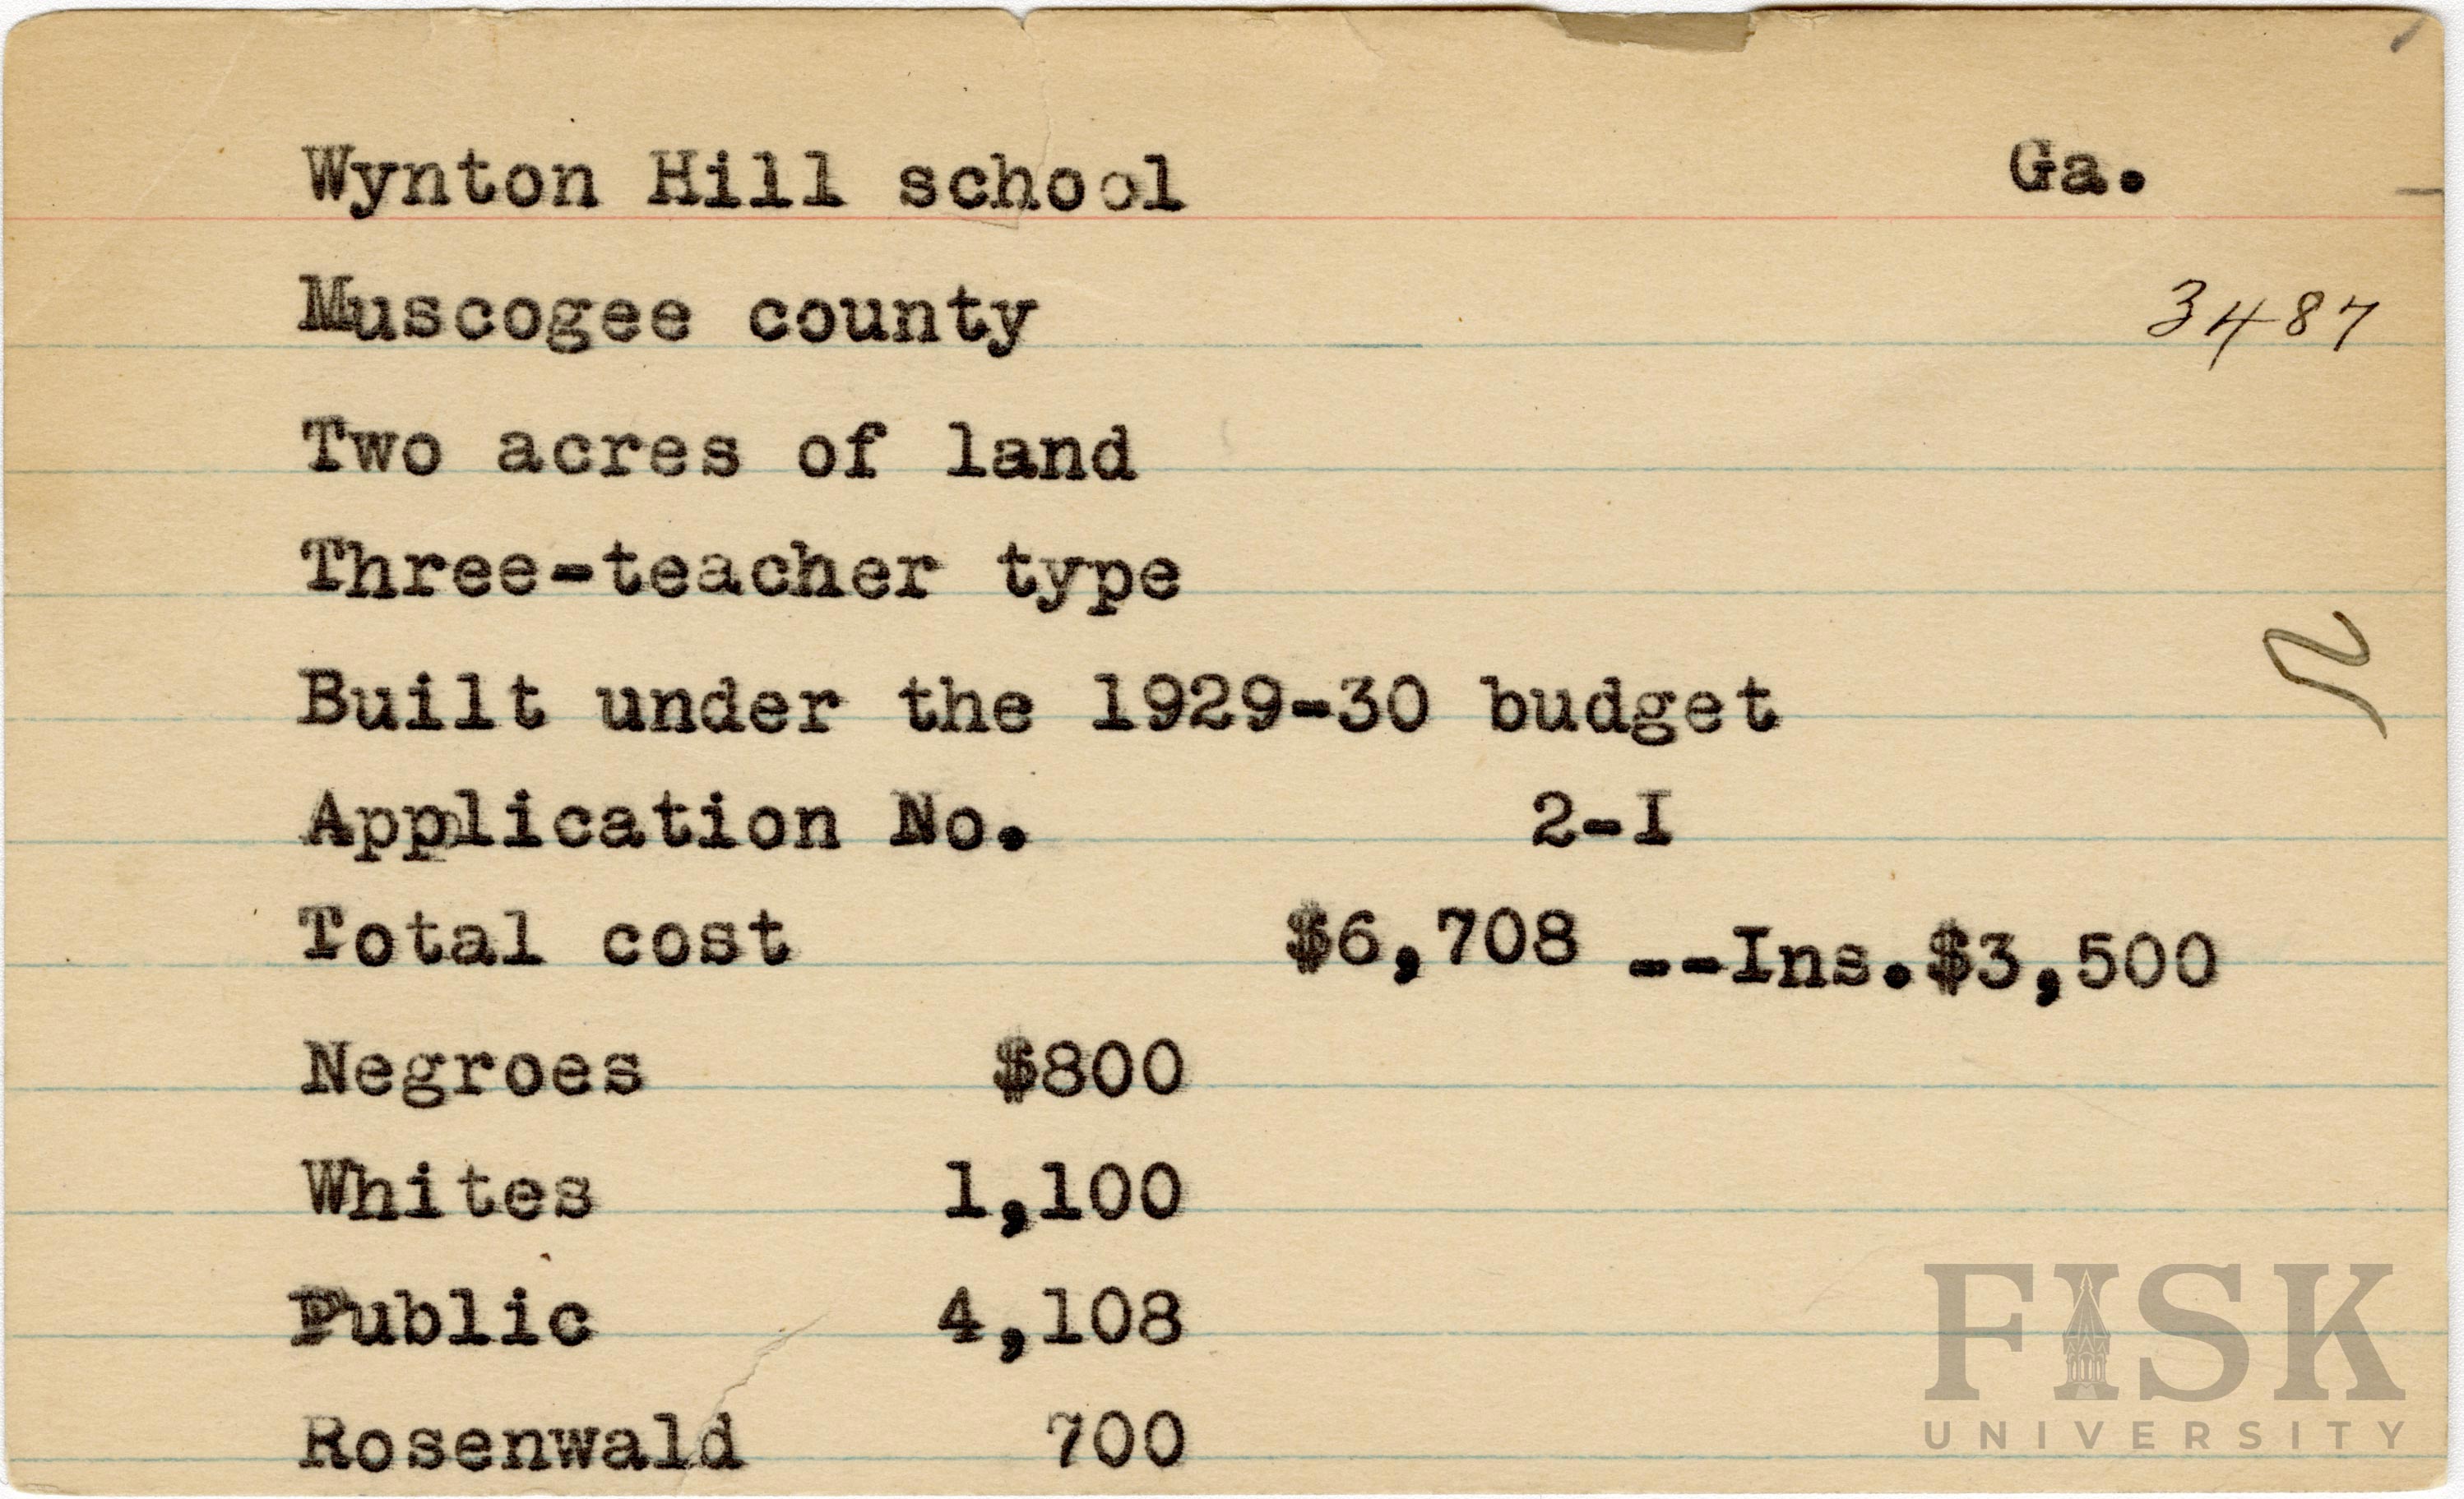 Wynton Hill school Ga.
Muscogee county 3487
Two acres of land
Three-teacher type
Built under the 1929-30 budget
Application No. 2-I
Total cost $6,708 --Ins.$3,500
Negroes $800
Whites 1,100
Public 4,108
Rosenwald 700
FISK
UNIVERSITY